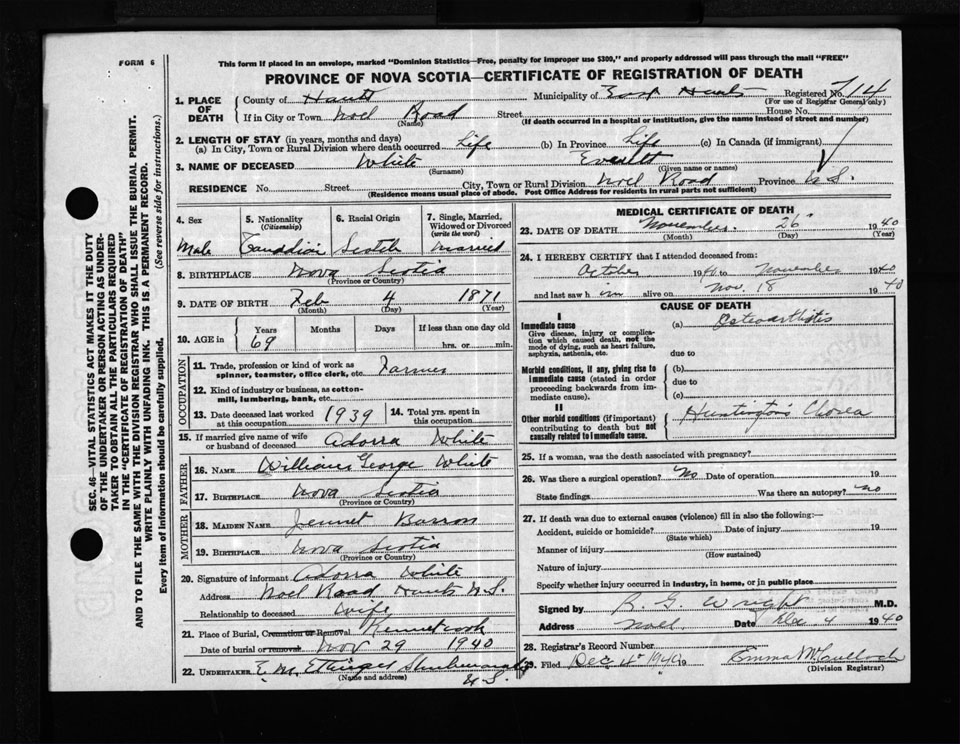 FORM 6
This form if placed in an envelope, marked "Dominion Statistics—Free, penalty for improper use $300," and properly addressed will pass through the mail "FREE"
PROVINCE OF NOVA SCOTIA—CERTIFICATE OF REGISTRATION OF DEATH
SEC. 46—VITAL STATISTICS ACT MAKES IT THE DUTY
OF THE UNDERTAKER OR PERSON ACTING AS UNDER-
TAKER TO OBTAIN ALL THE PARTICULARS REQUIRED
IN THE "CERTIFICATE OF REGISTRATION OF DEATH"
AND TO FILE THE SAME WITH THE DIVISION REGISTRAR WHO SHALL ISSUE THE BURIAL PERMIT.
WRITE PLAINLY WITH UNFADING INK. THIS IS A PERMANENT RECORD.
Every item of information should be carefully supplied. (See reverse side for instructions.)
1. PLACE OF DEATH County of Hants Municipality of East Hants Registered No. 714
(For use of Registrar General only)
If in City or Town Noel Road Street House No.
(Name) (If death occurred in a hospital or institution, give the name instead of street and number)
2. LENGTH OF STAY (in years, months and days)
(a) In City, Town or Rural Division where death occurred Life (b) In Province Life (c) In Canada (if immigrant)
3. NAME OF DECEASED White Everett
(Surname) (Given name or names)
RESIDENCE No. Street City, Town or Rural Division Noel Road Province N.S.
(Residence means usual place of abode. Post Office Address for residents in rural parts not sufficient)
4. Sex Male
5. Nationality (Citizenship) Canadian
6. Racial Origin Scotch
7. Single, Married, Widowed or Divorced (write the word) Married
8. BIRTHPLACE Nova Scotia
(Province or Country)
9. DATE OF BIRTH Feb 4 1871
(Month) (Day) (Year)
10. AGE in Years 69 Months Days If less than one day old hrs. or min.
OCCUPATION
11. Trade, profession or kind of work as spinner, teamster, office clerk, etc. Farmer
12. Kind of industry or business, as cotton-mill, lumbering, bank, etc.
13. Date deceased last worked at this occupation 1939 14. Total yrs. spent in this occupation
15. If married give name of wife or husband of deceased Adorra White
FATHER
16. NAME William George White
17. BIRTHPLACE Nova Scotia
(Province or Country)
MOTHER
18. MAIDEN NAME Jennet Barron
19. BIRTHPLACE Nova Scotia
(Province or Country)
20. Signature of informant Adorra White
Address Noel Road Hants N.S.
Relationship to deceased Wife
21. Place of Burial, Cremation or Removal Kennetcook
Date of burial or removal Nov 29 1940
22. UNDERTAKER E. M. Ettinger
N.S.
(Name and address)
MEDICAL CERTIFICATE OF DEATH
23. DATE OF DEATH November 26 1940
(Month) (Day) (Year)
24. I HEREBY CERTIFY that I attended deceased from:
October 1940 to November 1940
and last saw h im alive on Nov. 18 1940
CAUSE OF DEATH
I
Immediate cause (a) Osteoarthitis
Give disease, injury or complication which caused death, not the mode of dying, such as heart failure, asphyxia, asthenia, etc.
due to
Morbid conditions, if any, giving rise to immediate cause (stated in order proceeding backwards from immediate cause). (b)
due to
(c)
II
Other morbid conditions (if important) contributing to death but not causally related to immediate cause. Huntington's Chorea
25. If a woman, was the death associated with pregnancy?
26. Was there a surgical operation? No Date of operation 19
State findings Was there an autopsy? No
27. If death was due to external causes (violence) fill in also the following:—
Accident, suicide or homicide? Date of injury 19
(State which)
Manner of injury
(How sustained)
Nature of injury
Specify whether injury occurred in industry, in home, or in public place
Signed by R. G. Wright M.D.
Address Noel Date Dec 4 1940
28. Registrar's Record Number
29. Filed Dec 4 1940 19 Emma McCulloch
(Division Registrar)